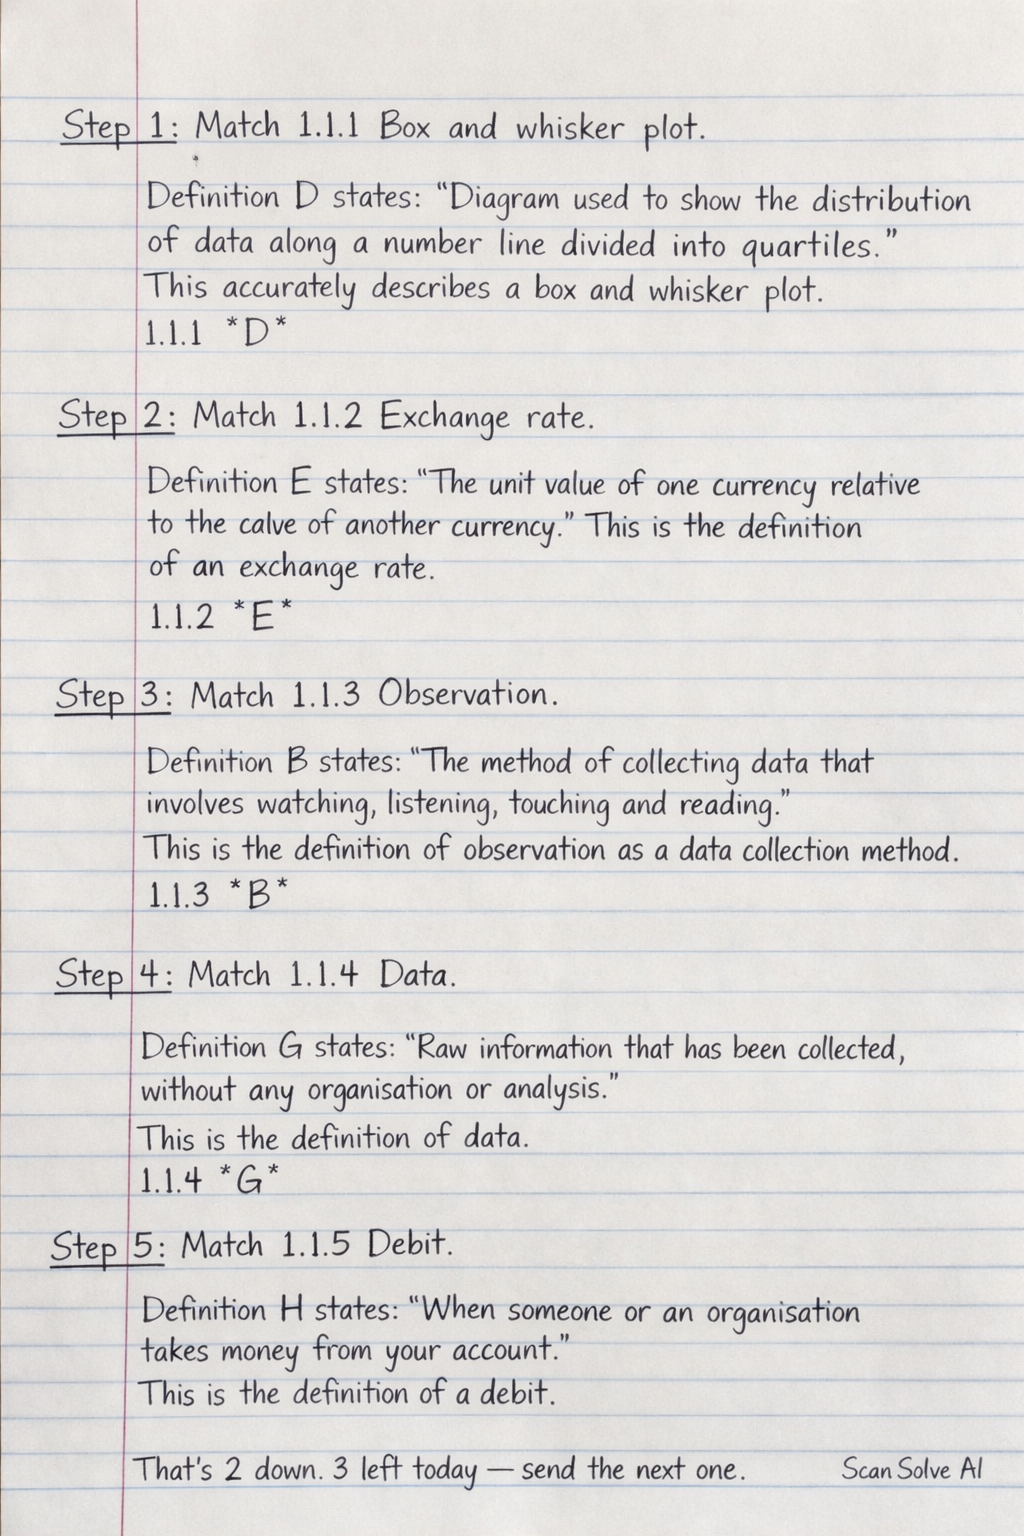 Step 1: Match 1.1.1 Box and whisker plot.
Definition D states: “Diagram used to show the distribution
of data along a number line divided into quartiles.”
This accurately describes a box and whisker plot.
1.1.1 *D*
Step 2: Match 1.1.2 Exchange rate.
Definition E states: “The unit value of one currency relative
to the calve of another currency.” This is the definition
of an exchange rate.
1.1.2 *E*
Step 3: Match 1.1.3 Observation.
Definition B states: “The method of collecting data that
involves watching, listening, touching and reading.”
This is the definition of observation as a data collection method.
1.1.3 *B*
Step 4: Match 1.1.4 Data.
Definition G states: “Raw information that has been collected,
without any organisation or analysis.”
This is the definition of data.
1.1.4 *G*
Step 5: Match 1.1.5 Debit.
Definition H states: “When someone or an organisation
takes money from your account.”
This is the definition of a debit.
That's 2 down. 3 left today — send the next one. ScanSolve AI